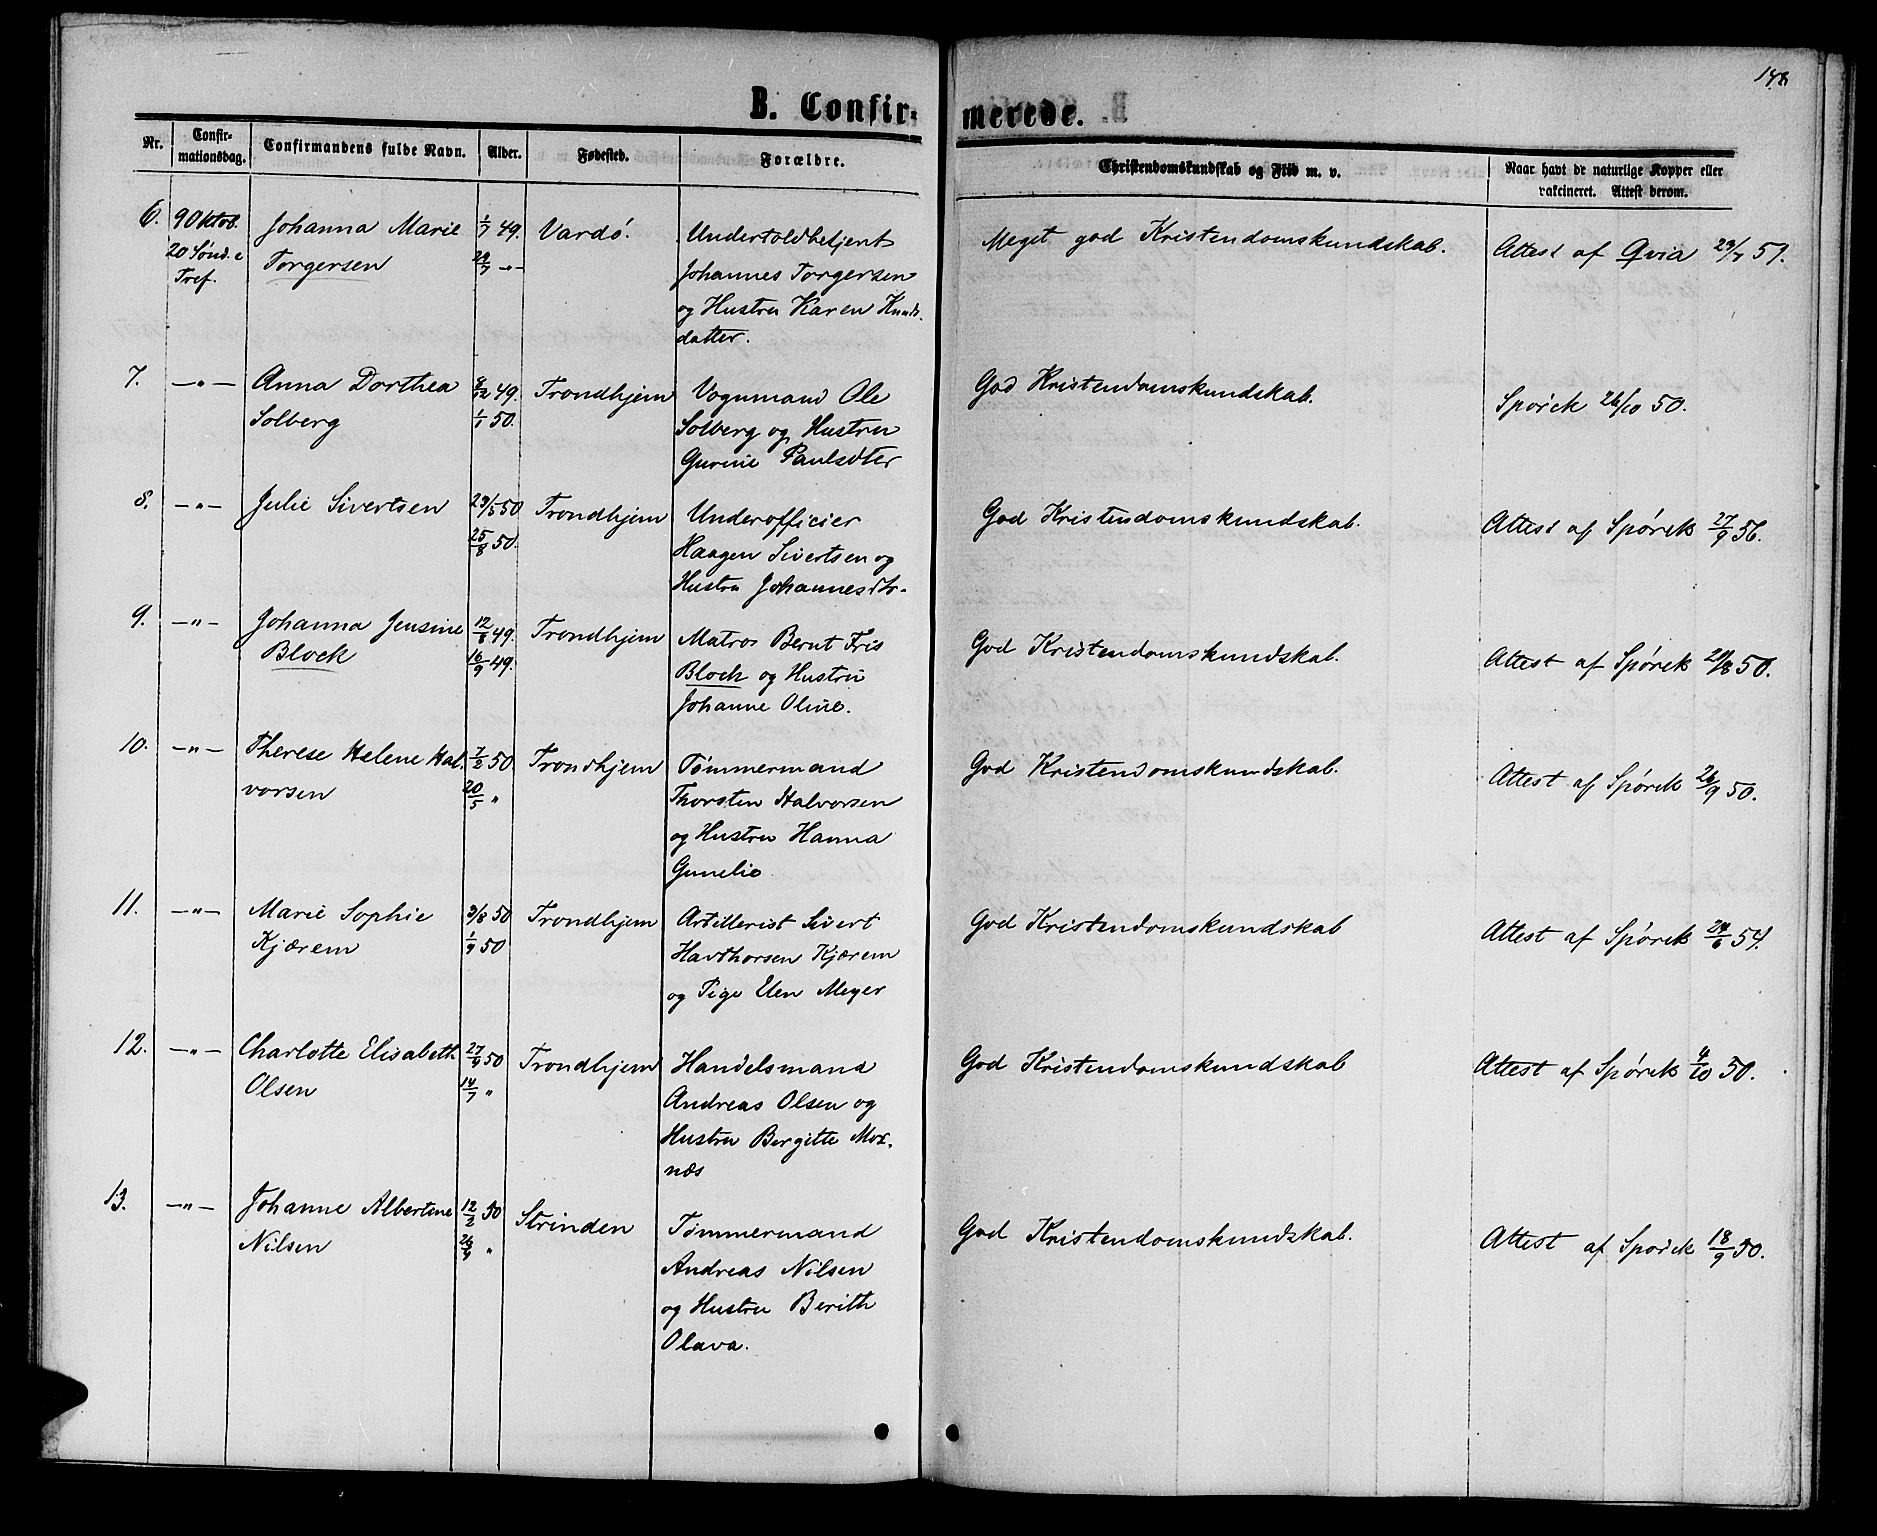 148
B. Confirmerede.
Nr. Confirmationsdag. Confirmandens fulde Navn. Alder. Fødested. Forældre. Christendomskundskab og Flid m. v. Naar havt de naturlige Kopper eller vakcineret. Attest derom.
6. 9 Oktob. Johanna Marie 1/7 49. Vardö. Undertoldbetjent Meget god Kristendomskundskab. Attest af Qvia 29/7 51.
20 Sönd. e Torgersen 29/7 -"- Johannes Torgersen
Tref. og Hustru Karen Knuds-
datter.
7. -"- Anna Dorthea 8/12 49. Trondhjem Vognmand Ole God Kristendomskundskab. Spörck 26/10 50.
Solberg 1/1 50. Solberg og Hustru
Gurine Paulsdter
8. -"- Julie Sivertsen 29/5 50 Trondhjem Underofficier God Kristendomskundskab. Attest af Spörck 27/9 56.
25/8 50. Haagen Sivertsen og
Hustru Johannesdtr.
9. -"- Johanna Jensine 12/8 49. Trondhjem Matros Bernt Fris God Kristendomskundskab. Attest af Spörck /8 50.
Block 16/9 49. Block og Hustru
Johanne Oline.
10. -"- Therese Helene Hal- 7/2 50 Trondhjem Tömmermand God Kristendomskundskab. Attest af Spörck 26/9 50.
vorsen 20/5 " Thorsten Halvorsen
og Hustru Hanna
Gunelie
11. -"- Marie Sophie 3/8 50 Trondhjem Artillerist Sivert God Kristendomskundskab Attest af Spörck 24/6 54.
Kjærem 1/9 50 Havthorsen Kjærem
og Pige Elen Meyer
12. -"- Charlotte Elisabeth 27/4 50 Trondhjem Handelsmand God Kristendomskundskab Attest af Spörck 4/10 50.
Olsen 14/7 " Andreas Olsen og
Hustru Bergitte Mox-
næs
13. -"- Johanne Albertine 12/2 50 Strinden Tömmermand God Kristendomskundskab. Attest af Spörck 18/9 50.
Nilsen 26/4 " Andreas Nilsen
og Hustru Berith
Olava.